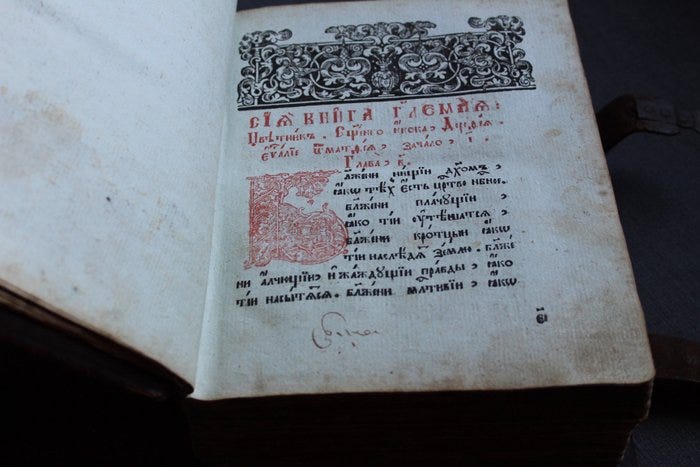 СІѦ КНИГА ГЛЕМАѦ:
Цвѣтникъ. Сщ҃нно інока, Дорѳеѧ.
Еѵⷢ҇лїе ѿ матѳеѧ, зачало, і҃.
Глава, є҃.
Блаже́ни нищїи дх҃омъ,
ꙗ҆́кѡ тѣхъ є҆́сть црⷭ҇тво нбⷭ҇ное.
бл҃же́ни пла́чꙋщїи,
ꙗ҆́ко тїи ᲂу҆тѣ́шатсѧ.
бл҃же́ни кро́тцыи ꙗ҆́кѡ
тїи наслѣ́дѧтъ зе́млю. бл҃же
ни а҆́лчꙋщїи, и҆ жа́ждꙋщїи пра́вды, ꙗ҆́ко
тїи насы́тѧтсѧ. бл҃же́ни мл҃тивїи, ꙗ҆́кѡ